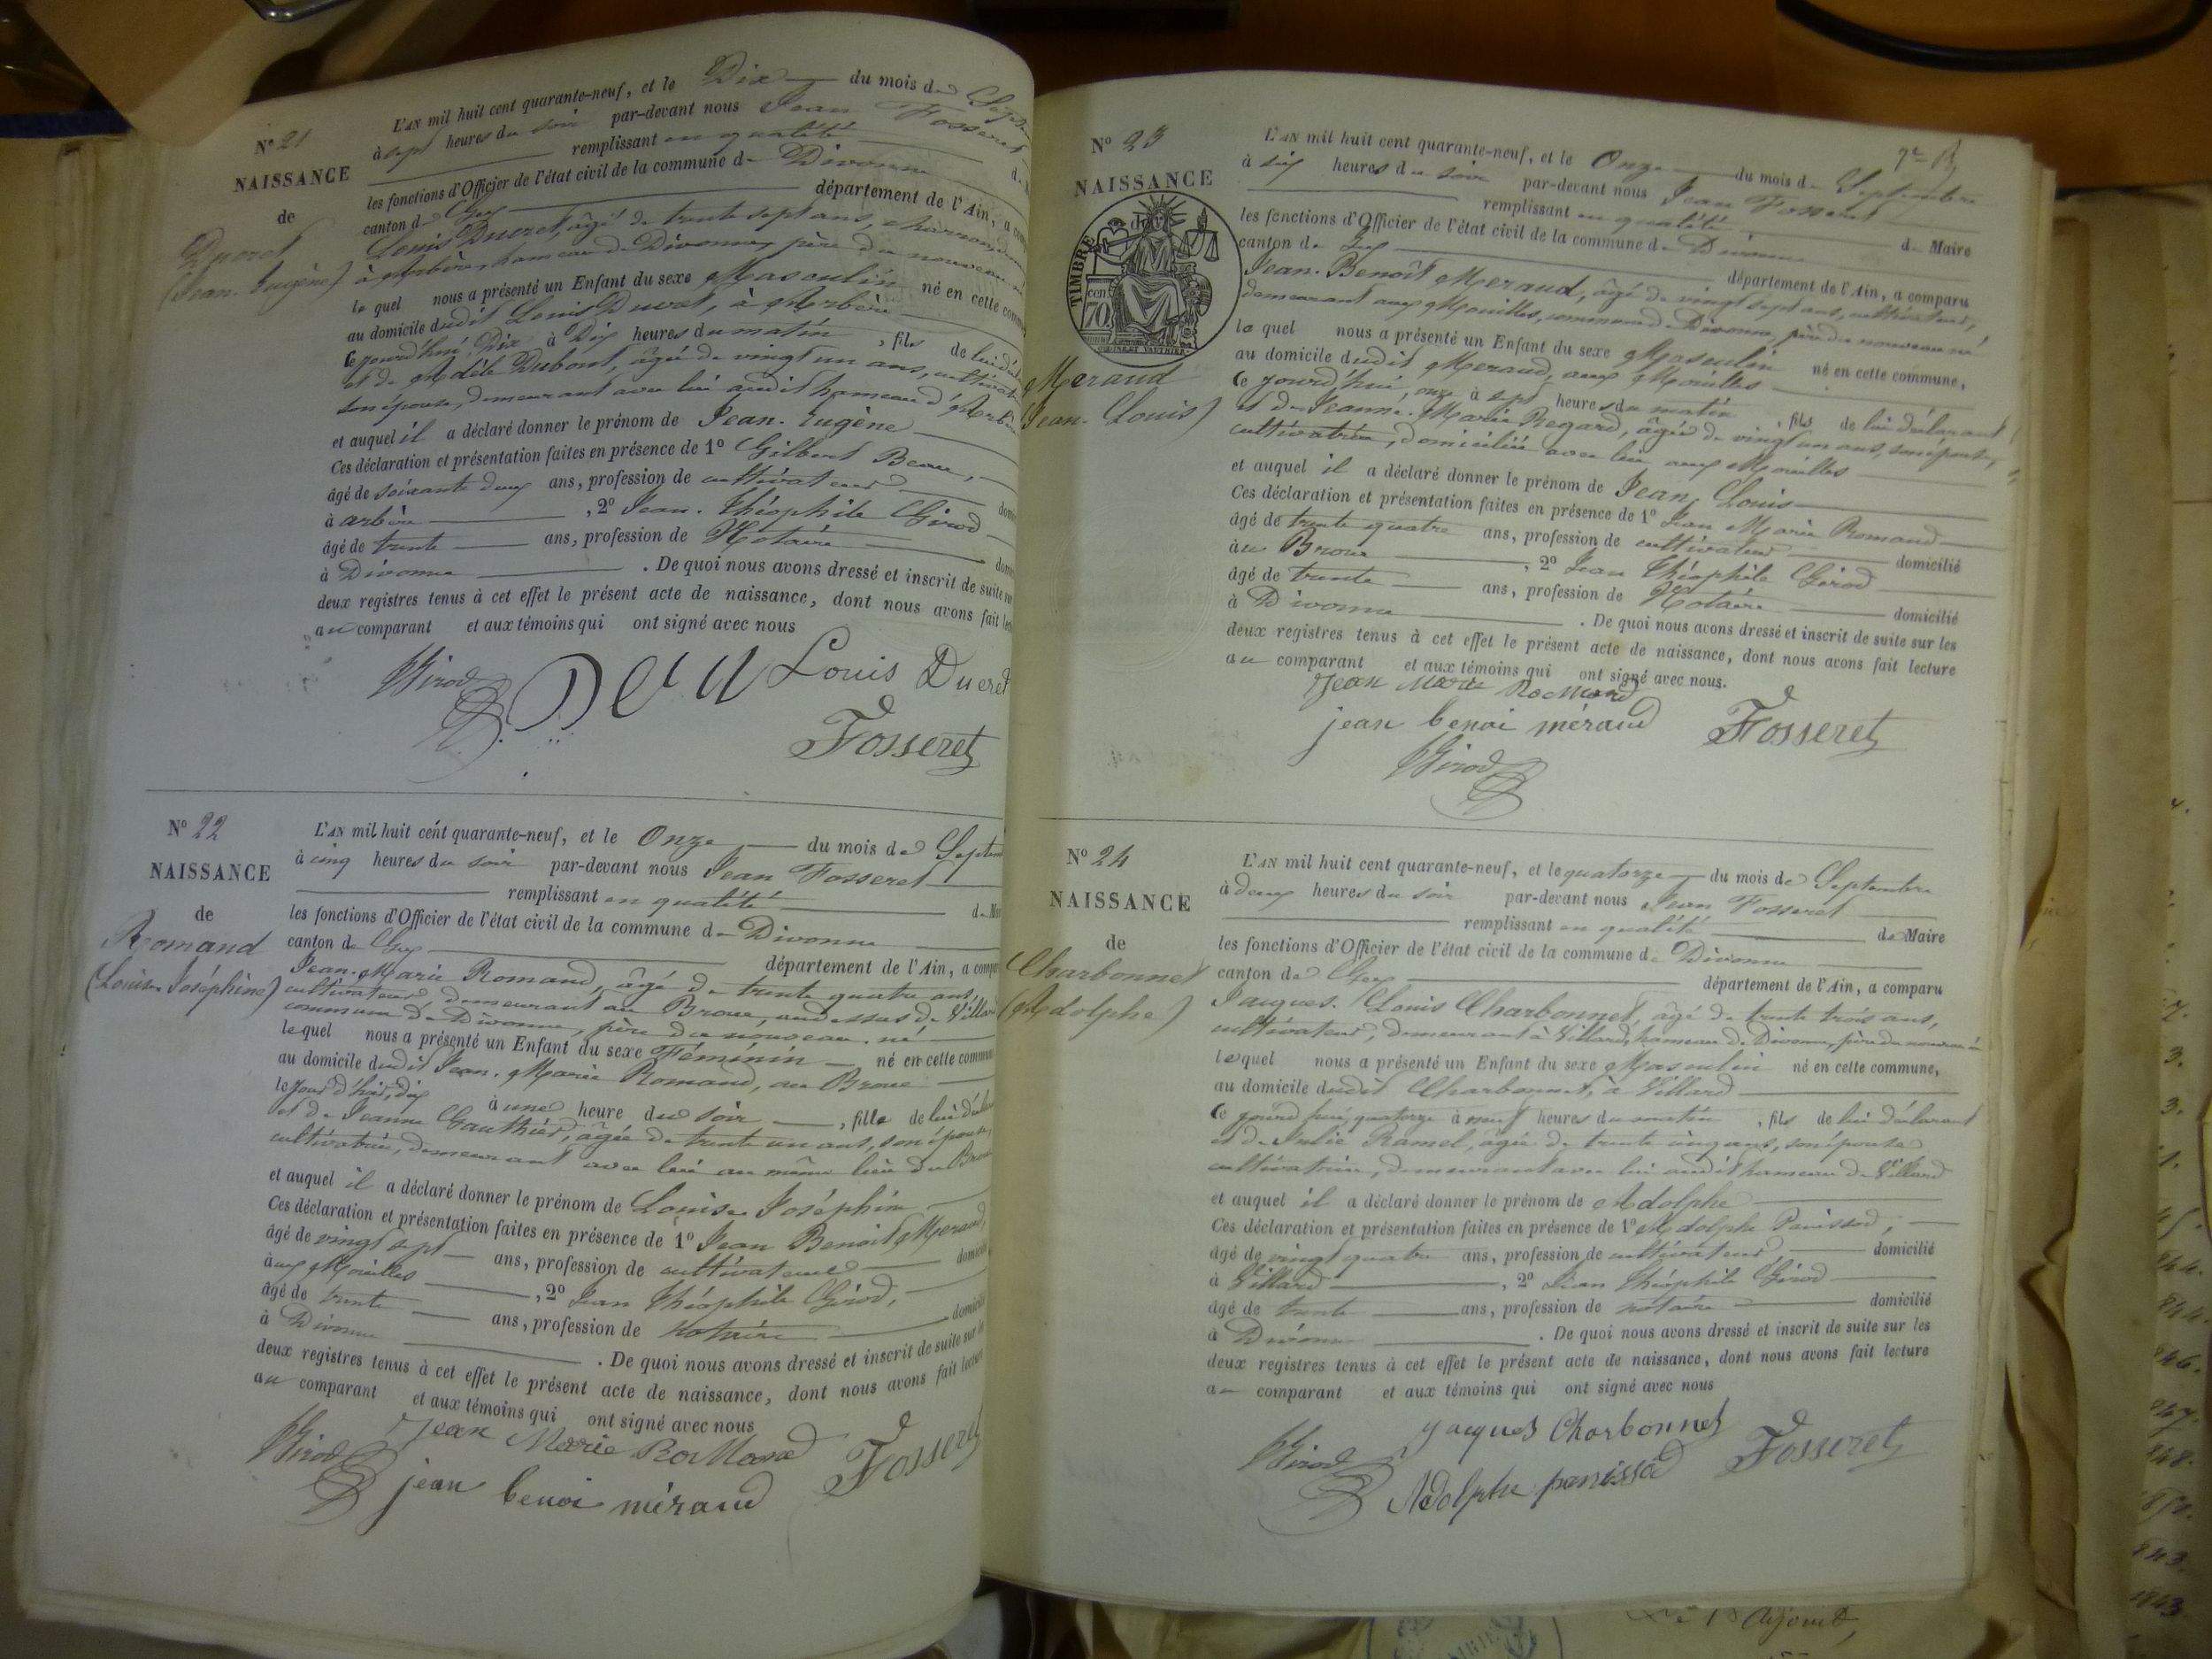 N° 21
NAISSANCE
de
Ducret
(Jean-Eugène)
L'AN mil huit cent quarante-neuf, et le Dix du mois de Septem
à sept heures du soir par-devant nous Jean Fosseret
remplissant en qualité d
les fonctions d'Officier de l'état civil de la commune de Divonne
canton de Gex département de l'Ain, a comp
Louis Ducret, âgé de trente sept ans, charron, dem
à Arbère, hameau de Divonne, père du nouveau
le quel nous a présenté un Enfant du sexe Masculin né en cette comm
au domicile dudit Louis Ducret, à Arbère
Ce jourd'hui, Dix à Dix heures du matin, fils de lui décl
et de Adèle Dubout, âgée de vingt un ans, cultivat
son épouse, demeurant avec lui audit hameau d'Arbère
et auquel il a déclaré donner le prénom de Jean-Eugène
Ces déclaration et présentation faites en présence de 1° Gilbert Beau,
âgé de soixante deux ans, profession de cultivateur domi
à arbère, 2° Jean-Théophile Girod
âgé de trente ans, profession de Notaire domi
à Divonne. De quoi nous avons dressé et inscrit de suite sur
deux registres tenus à cet effet le présent acte de naissance, dont nous avons fait lec
au comparant et aux témoins qui ont signé avec nous
Girod Beau Louis Ducret
Fosseret
N° 22
NAISSANCE
de
Romand
(Louise Joséphine)
L'AN mil huit cent quarante-neuf, et le Onze du mois de Septem
à cinq heures du soir par-devant nous Jean Fosseret
remplissant en qualité de M
les fonctions d'Officier de l'état civil de la commune de Divonne
canton de Gex département de l'Ain, a compa
Jean-Marie Romand, âgé de trente quatre ans,
cultivateur, demeurant au Broue, au dessus de Villard
commune de Divonne, père du nouveau né
le quel nous a présenté un Enfant du sexe Féminin né en cette commun
au domicile dudit Jean-Marie Romand, au Broue
le jour d'hier, dix à une heure du soir, fille de lui déclar
et de Jeanne Gauthier, âgée de trente un ans, son épouse,
cultivatrice, demeurant avec lui au même lieu du Broue
et auquel il a déclaré donner le prénom de Louise Joséphine
Ces déclaration et présentation faites en présence de 1° Jean Benoit Meraud,
âgé de vingt sept ans, profession de cultivateur domicil
aux Mouilles, 2° Jean Théophile Girod,
âgé de trente ans, profession de notaire domicilié
à Divonne. De quoi nous avons dressé et inscrit de suite sur le
deux registres tenus à cet effet le présent acte de naissance, dont nous avons fait lecture
au comparant et aux témoins qui ont signé avec nous
Girod Jean Marie Romand Fosseret
jean benoi méraud
N° 23
NAISSANCE
de
TIMBRE
cen
70
Meraud
(Jean-Louis)
L'AN mil huit cent quarante-neuf, et le Onze du mois de Septembre
à six heures du soir par-devant nous Jean Fosseret
remplissant en qualité de Maire
les fonctions d'Officier de l'état civil de la commune de Divonne
canton de Gex département de l'Ain, a comparu
Jean-Benoît Meraud, âgé de vingt sept ans, cultivateur,
demeurant aux Mouilles, commune de Divonne, père du nouveau né
le quel nous a présenté un Enfant du sexe Masculin né en cette commune,
au domicile dudit Meraud, aux Mouilles
Ce jourd'hui, onze à sept heures du matin, fils de lui déclarant
et de Jeanne-Marie Regard, âgée de vingt un ans, son épouse,
cultivatrice, domiciliée avec lui aux Mouilles
et auquel il a déclaré donner le prénom de Jean, Louis
Ces déclaration et présentation faites en présence de 1° Jean Marie Romand
âgé de trente quatre ans, profession de cultivateur domicilié
au Broue, 2° Jean Théophile Girod
âgé de trente ans, profession de Notaire domicilié
à Divonne. De quoi nous avons dressé et inscrit de suite sur les
deux registres tenus à cet effet le présent acte de naissance, dont nous avons fait lecture
au comparant et aux témoins qui ont signé avec nous.
Jean Marie Romand
jean benoi méraud Fosseret
Girod
N° 24
NAISSANCE
de
Charbonnet
(Adolphe)
L'AN mil huit cent quarante-neuf, et le quatorze du mois de Septembre
à deux heures du soir par-devant nous Jean Fosseret
remplissant en qualité de Maire
les fonctions d'Officier de l'état civil de la commune de Divonne
canton de Gex département de l'Ain, a comparu
Jacques-Louis Charbonnet, âgé de trente trois ans,
cultivateur, demeurant à Villard, hameau de Divonne, père du nouveau né
le quel nous a présenté un Enfant du sexe Masculin né en cette commune,
au domicile dudit Charbonnet, à Villard
Ce jourd'hui, quatorze à neuf heures du matin, fils de lui déclarant
et de Julie Ramel, âgée de trente cinq ans, son épouse
cultivatrice, demeurant avec lui audit hameau de Villard
et auquel il a déclaré donner le prénom de Adolphe
Ces déclaration et présentation faites en présence de 1° Adolphe Panissod,
âgé de vingt quatre ans, profession de cultivateur domicilié
à Villard, 2° Jean Théophile Girod
âgé de trente ans, profession de notaire domicilié
à Divonne. De quoi nous avons dressé et inscrit de suite sur les
deux registres tenus à cet effet le présent acte de naissance, dont nous avons fait lecture
au comparant et aux témoins qui ont signé avec nous
Girod Jacques Charbonnet Fosseret
Adolphe panissod